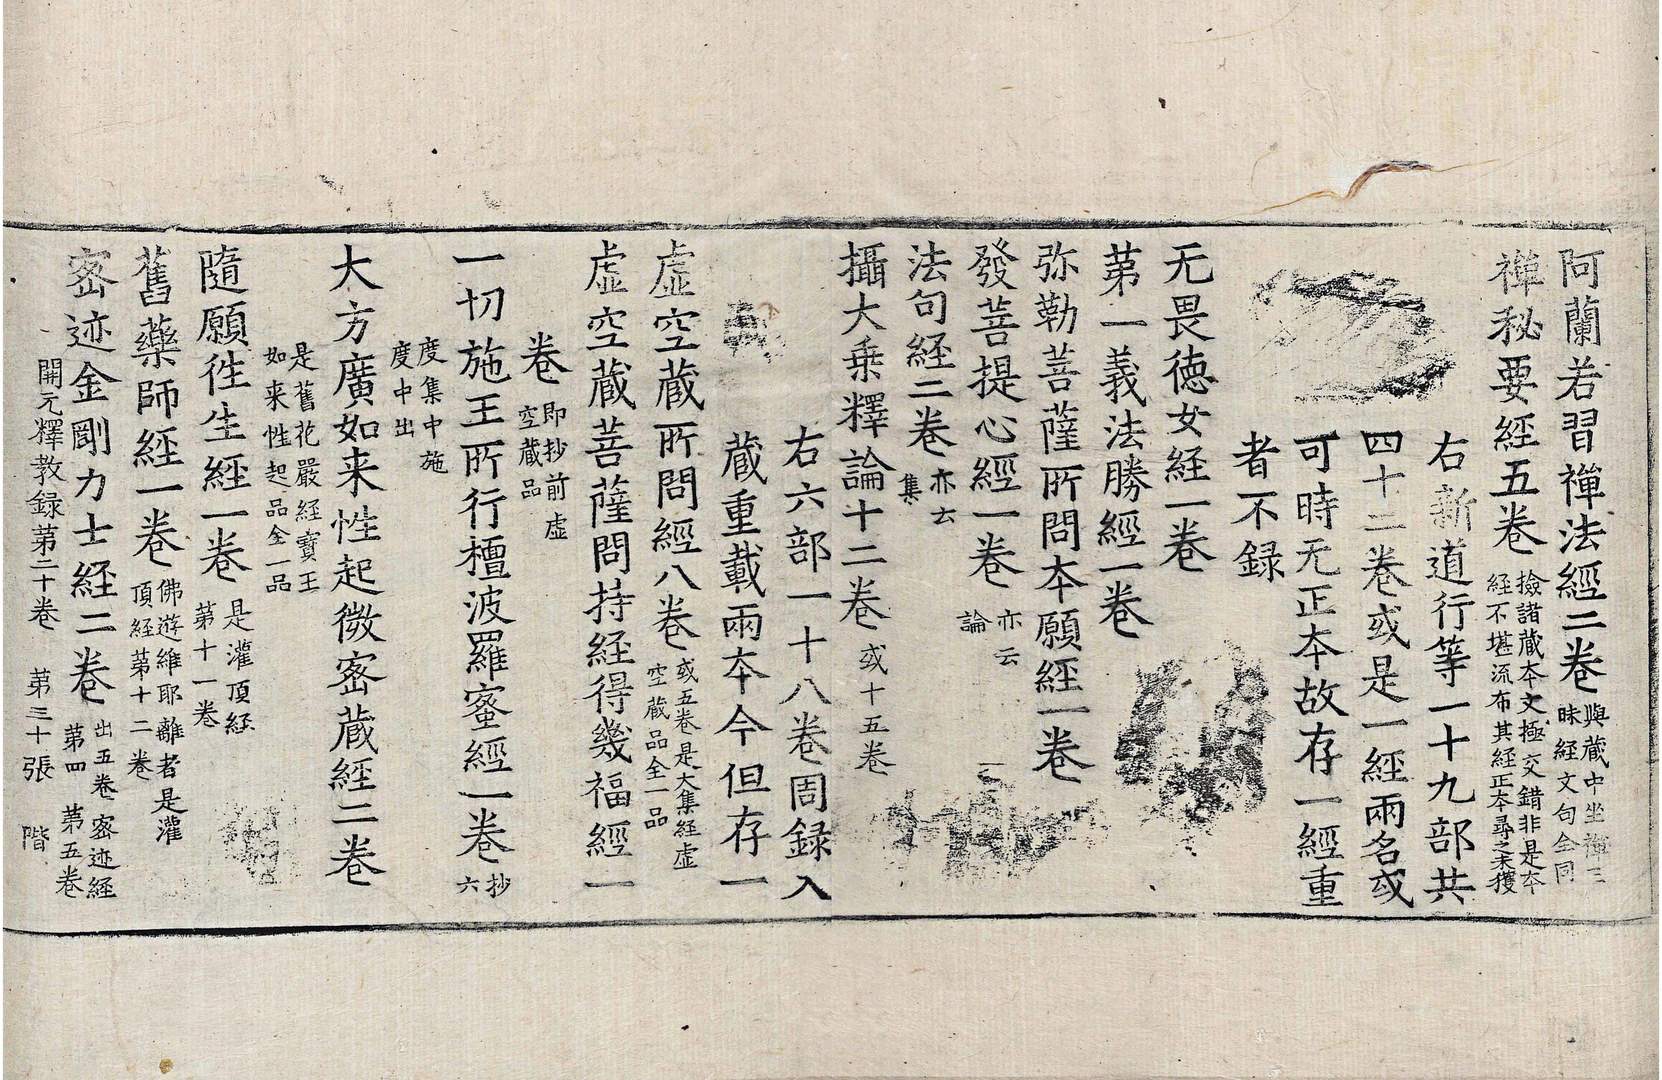 阿蘭若習禪法經二卷與蔵中坐禪三昧経文句全同
禅秘要経五卷撿諸蔵夲文極交錯非是夲経不堪流布其経正夲尋之未獲
右新道行等一十九部共
四十二卷或是一經兩名或
可時无正夲故存一經重
者不録
无畏徳女経一卷
第一義法勝經一卷
弥勒菩薩所問夲願經一卷
發菩提心經一卷亦云論
法句経二卷亦云集
攝大乗釋論十二卷或十五卷
右六部一十八卷周録入
蔵重載兩夲今但存一
虚空蔵所問經八卷或五卷是大集経虚空蔵品全一品
虚空蔵菩薩問持経得幾福經一
卷即抄前虚空蔵品
一切施王所行檀波羅蜜經一卷抄六
度集中施度中出
大方廣如来性起微密蔵經二卷
是舊花嚴経寶王如来性起品全一品
隨願徃生經一卷是灌頂経第十一卷
舊藥師経一卷佛遊維耶離者是灌頂経第十二卷
密迹金剛力士経二卷出五卷密迹経第四第五卷
開元釋教録第二十卷 第三十張 階